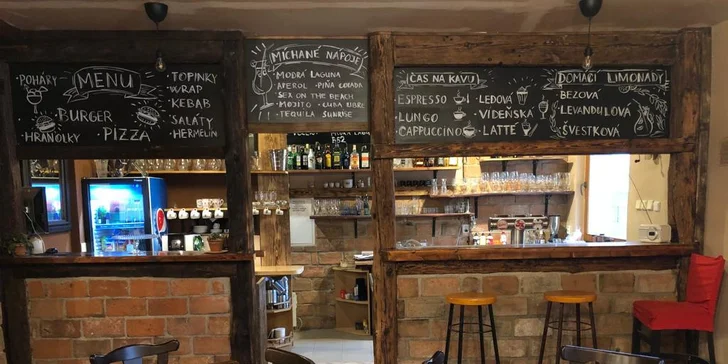 POHÁRY
MENU
BURGER
HRANOLKY
PIZZA
• TOPINKY
• WRAP
• KEBAB
• SALÁTY
• HERMELÍN
MÍCHANÉ NÁPOJE
MODRÁ LAGUNA
APEROL • PIŇA COLADA
SEX ON THE BEACH
MOJITO • CUBA LIBRE
• TEQUILA SUNRISE
ČAS NA KÁVU
ESPRESSO
LUNGO
CAPPUCCINO
• LEDOVÁ
• VÍDEŇSKÁ
• LATTÉ
DOMÁCÍ LIMONÁDY
BEZOVÁ
LEVANDULOVÁ
ŠVESTKOVÁ